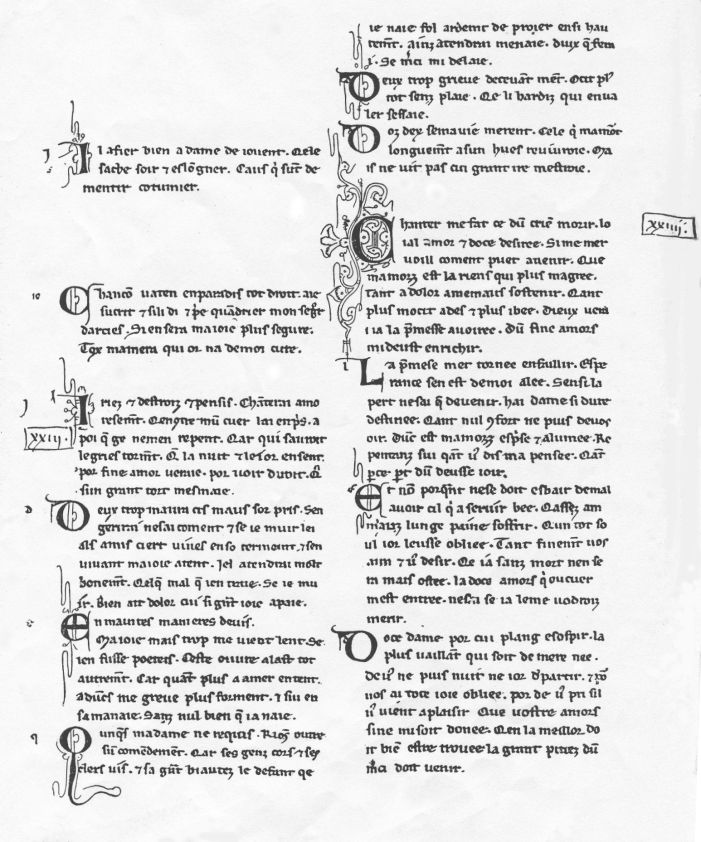 I l afier bien a dame de iouent. Qele
sache soir ⁊ eslõgner. Caus q̃ sũt de
mentir cotumier.
C hancõ uaten enparadis tot droit. aie
darcies. Si ensera maioie plus segure.
mainera qui or na demoi cure.
I riez ⁊ destroiz ⁊ pensis. Chãterai amo
xxiij.
poi q̃ ge nemen repent. Car qui
fin grant tort mesmaie.
D eux trop maura cis maus sor pris. Sen
gerirai nesai coment ⁊ se ie muir lei
als amis
uiuant maioie atent. Iel atendrai molt
bonemẽt. Celq̃ mal q̃ ien traie. Se ie mu
ir. Bien ait dolor cui si grãt ioie apaie.
E n maintes manieres deuis.
Ma ioie mais trop me uient lent. Se
ien fusse poereis. Ceste ouure alast tot
autremẽt. Car quãt plus a amer entent.
aducs me greue plus forment. ⁊ siu en
samanaie. Sanz nul bien q̃ ia naie.
O unq̃s madame ne requis. Riẽs outre
sũ comẽdemẽt. Car ses genz cors ⁊ ses
clers uis. ⁊ sa grãt biautez le defent qe
ie naie fol ardemt de proier ensi hau
temt̃. ainz atendrai menaie.
Se mc̃i mi delaie.
D eux trop grieue deceuãt mẽt. Ocit
tot senz plaie. Qe li bardiz qui enua
ler sessaie.
D oz dex semauie merent. Cele q̃ mamor
longuemt̃ a sun hues reuiuroie. Ma
is ne uit pas en grant ire mestroie.
C hanter me fat ce dũ crien morir. lo
xxiiij.
ial amor ⁊ doce desiree. Si me mer
uoill coment puet auenir. Que
mamorz est la riens qui plus magree.
tant a dolor amemaus sostenir. Cant
plus mocit ades ⁊ plus ibee. Dieux uera
i ia la p̃messe auoiree. Dũ fine amors
mideust enrichir.
L a p̃mese mer tornee enfaillir. Esp̃e
rance sen est demoi alee. Sensi la
pert nesai q̃ deuenir. hai dame si dure
destinee. Cant nul ꝯfort ne puis deuos
oir. Dũc est mamorz esp̃se ⁊ alumee. Re
pentanz sui qãt iͥ dis ma pensee. Cãt
ꝑce ꝑt dũ deusse ioir.
E t nõ porqñt nese doit esbair demal
auoir cil q̃ a seruir bee. Cassez am
maltz lunge paine soffrir. Cun tot so
ul ior leusse obliee. Tant finemt̃ uos
aim ⁊ uͦ desir. Qe ia sanz mort nen se
ra mais ostee. la doce amors q̃ oucuer
mest entree. nesca se ia leme uodroiz
merir.
D oce dame por cui plaing esospir. la
plus uaillãt qui soit de mere nee.
de uͦ ne puis nuit ne ior dꝑartir. ⁊ ꝑo
uos ai tote ioie obliee. por de uͦ pri sil
uͦ uient a plaisir Que uostre amors
fine misoit donee. Qen la meillor do
it biẽ estre trouee la grant pitiez dũ
mc̃i doit uenir.